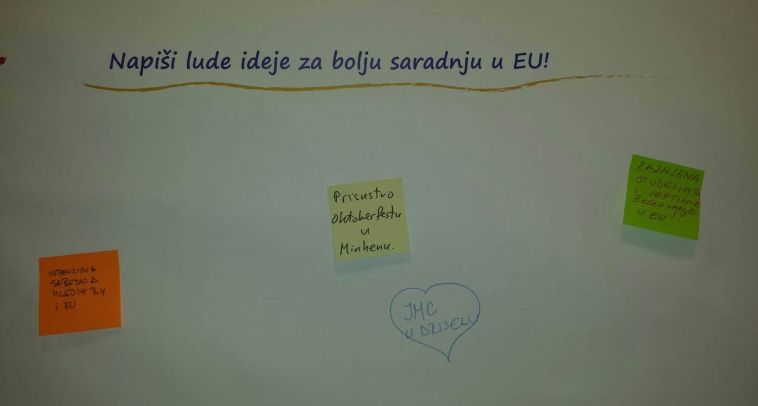 Napiši lude ideje za bolju saradnju u EU!
RAZMJENA
STUDENATA
I JEFTINIJE
ŠKOLOVANJE
U EU!
Prisustvo
Oktoberfestu
u
Minhenu.
INTENZIVNA
SARADNJA
MLADIH BiH
i EU
JMC
U BRISELU